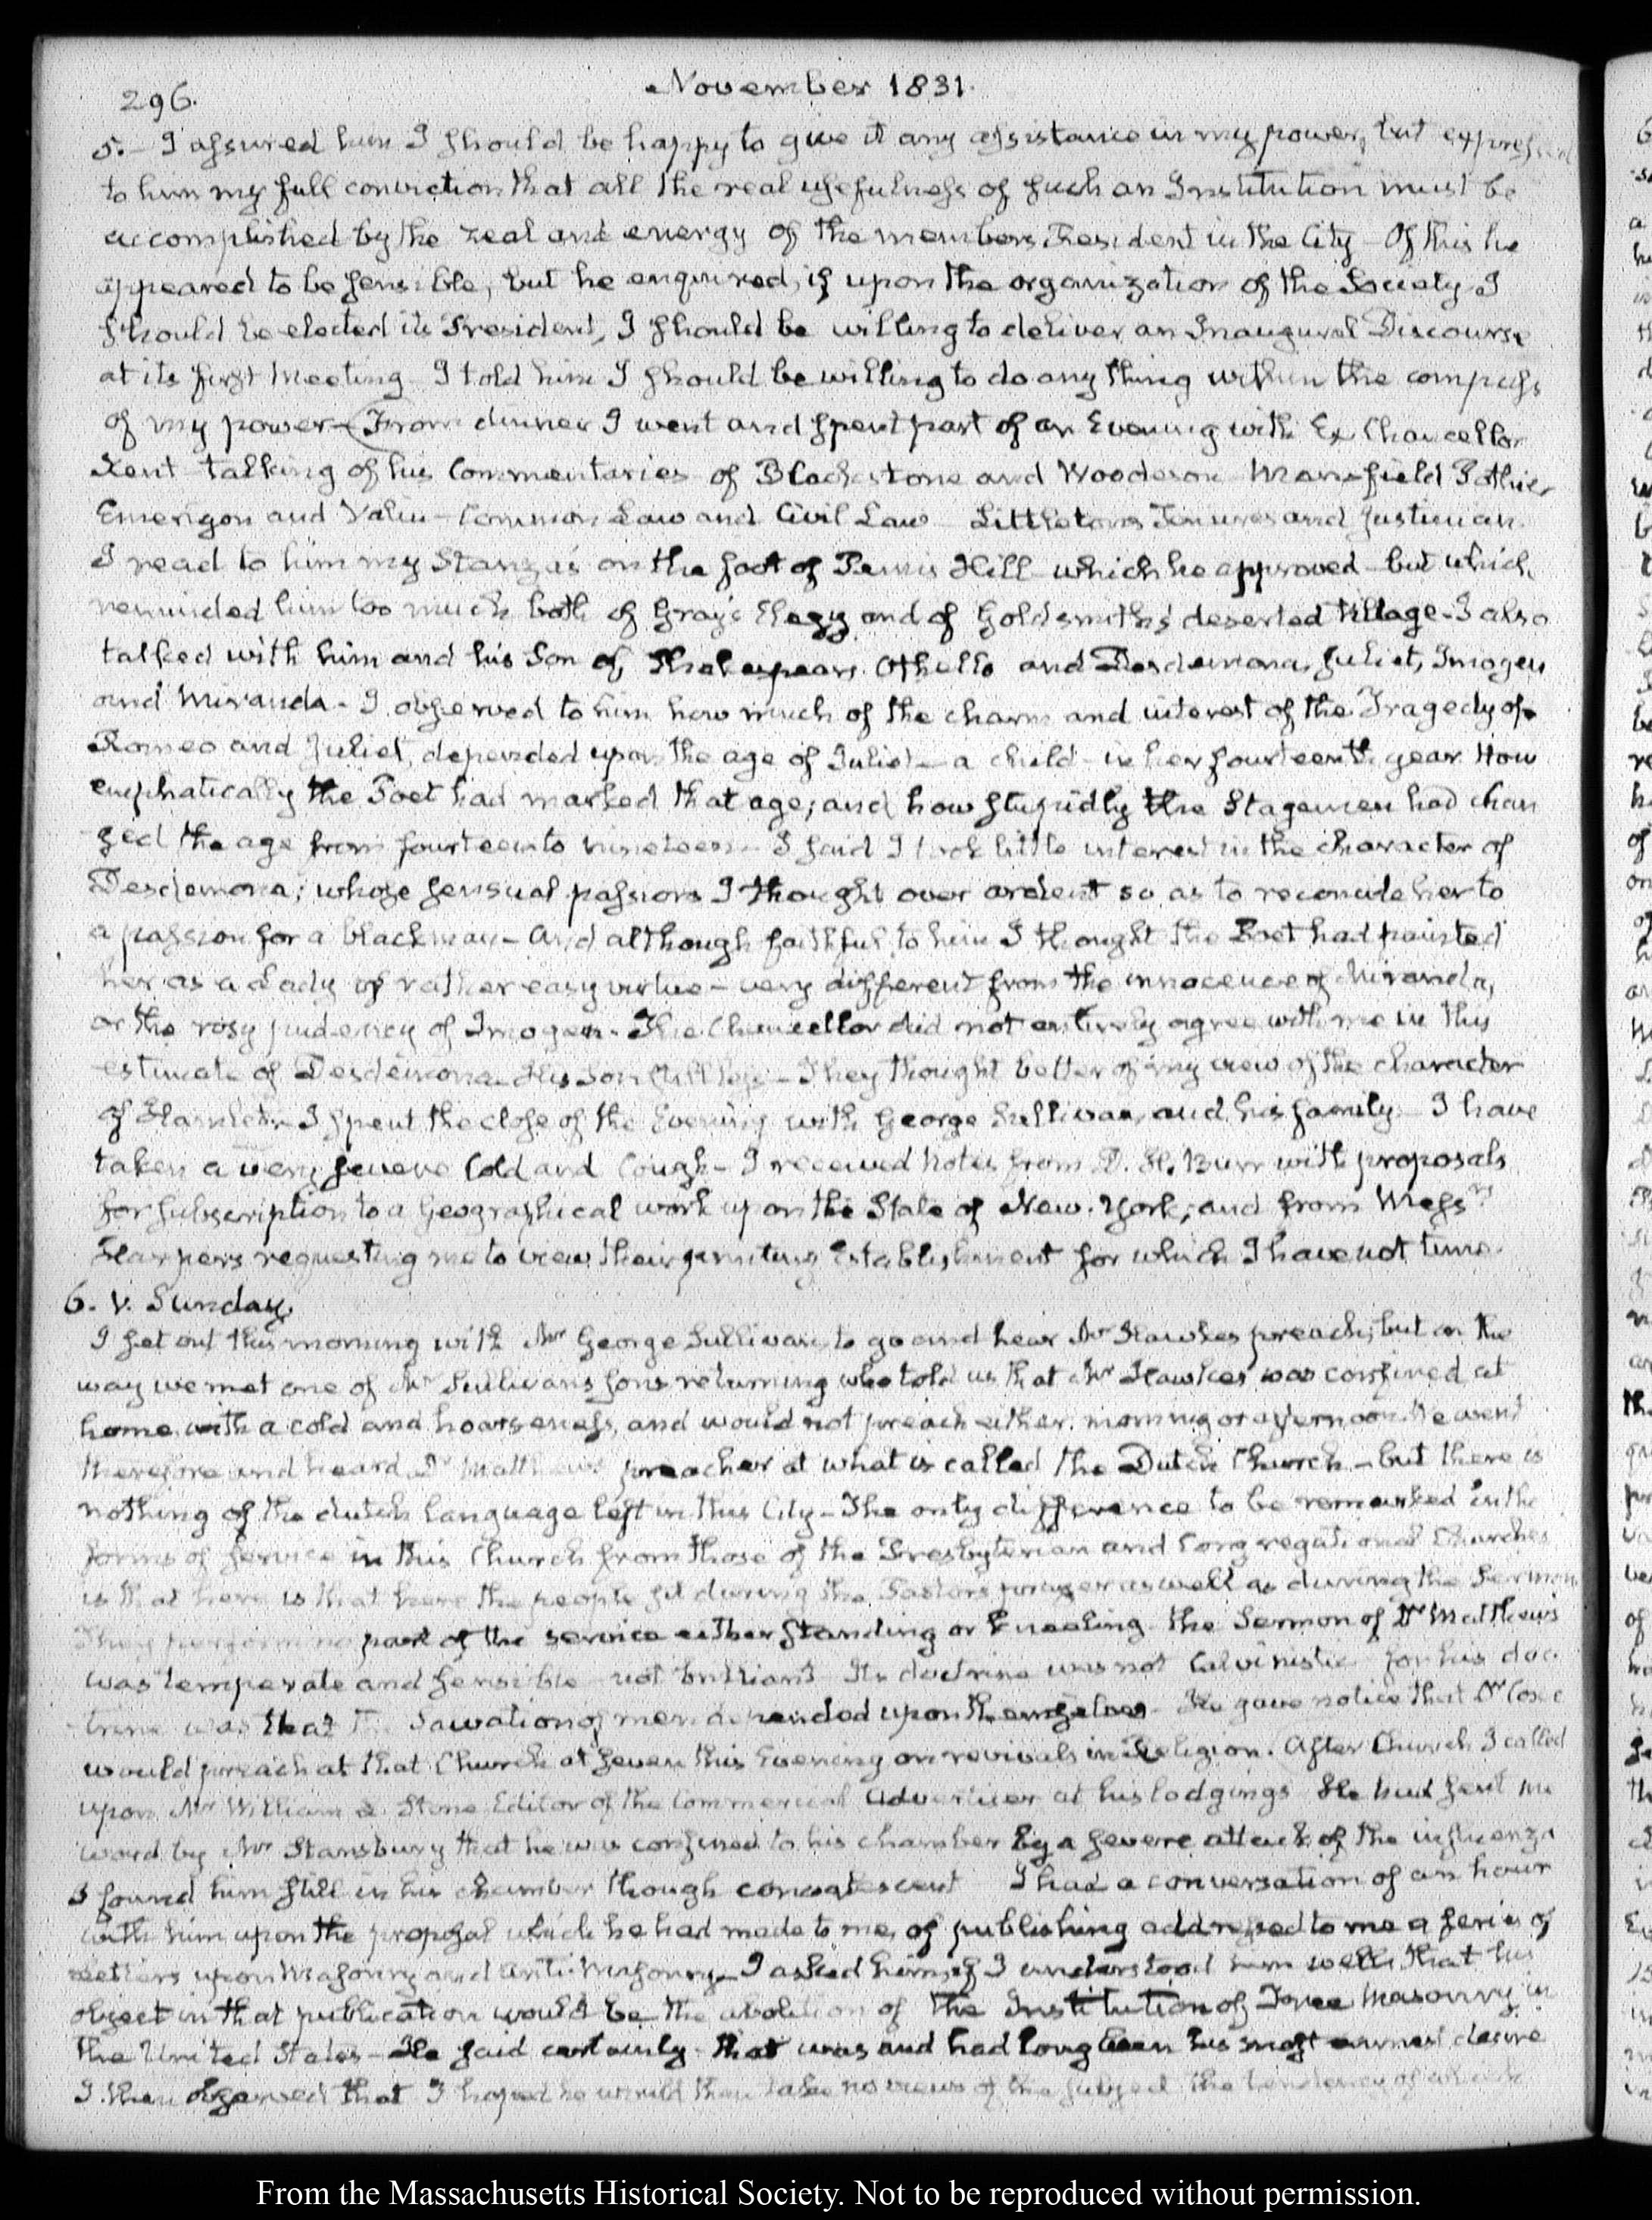 296.
November 1831.
5.– I assured him I should be happy to give it any assistance in my power, but expressed
to him my full conviction that all the real usefulness of such an Institution must be
accomplished by the zeal and energy of the members resident in the City – Of this he
appeared to be sensible, but he enquired, if upon the organization of the Society I
should be elected its President, I should be willing to deliver an Inaugural Discourse
at its first Meeting – I told him I should be willing to do any thing within the compass
of my power – From dinner I went and spent part of an Evening with Ex Chancellor
Kent talking of his Commentaries of Blackstone and Wooddeson Mansfield Pothier
Emerigon and Valin – Common Law and Civil Law Littletons Tenures and Justinian.
I read to him my Stanzas on the foot of Penns Hill which he approved – but which
reminded him too much both of Gray's Elegy and of Goldsmith's deserted Village – I also
talked with him and his Son of Shakespear. Othello and Desdemona, Juliet, Imogen
and Miranda – I observed to him how much of the charm and interest of the Tragedy of
Romeo and Juliet, depended upon the age of Juliet – a child – in her fourteenth year How
emphatically the Poet had marked that age; and how stupidly the Stagemen had chan
ged the age from fourteen to nineteen – I said I took little interest in the character of
Desdemona; whose sensual passions I thought over ardent so as to reconcile her to
a passion for a black man – and although faithful to him I thought the Poet had painted
her as a Lady of rather easy virtue – very different from the innocence of Miranda,
or the rosy pudency of Imogen – The Chancellor did not entirely agree with me in this
estimate of Desdemona – His Son still less – They thought better of my view of the character
of Hamlet. – I spent the close of the Evening with George Sullivan, and his family. I have
taken a very severe Cold and Cough – I received Notes from D. H. Burr with proposals
for subscription to a Geographical work upon the State of New-York; and from Messrs
Harpers requesting me to view their printing Establishment for which I have not time.
6. V. Sunday.
I set out this morning with Mr George Sullivan, to go and hear Mr Hawkes preach; but on the
way we met one of Mr Sullivan's sons returning who told us that Mr Hawkes was confined at
home with a cold and hoarseness, and would not preach either morning or afternoon. We went
therefore and heard Dr Matthews preacher at what is called the Dutch Church – but there is
nothing of the dutch language left in this City – The only difference to be remarked in the
forms of service in this Church from those of the Presbyterian and Congregational Churches
is that here is that here the people sit during the Pastors prayer as well as during the Sermon
They perform no part of the service either standing or kneeling. The Sermon of Dr Matthews
was temperate and sensible – not brilliant Its doctrine was not Calvinistic for his doc
trine was that the Salvation of men depended upon themselves – He gave notice that Dr
would preach at that Church at seven this Evening on revivals in Religion. After Church I called
upon Mr William L. Stone Editor of the Commercial Advertiser at his lodgings He had sent me
word by Mr Stansbury that he was confined to his chamber by a severe attack of the influenza
I found him still in his chamber though convalescent I had a conversation of an hour
with him upon the proposal which he had made to me, of publishing addressed to me a series of
letters upon Masonry and Anti-Masonry – I asked him if I understood him well, that his
object in that publication would be the abolition of the Institution of Free Masonry in
the United States – He said certainly – that was and had long been his most earnest desire
I then observed that I hoped he would then take no views of the subject the tendency of which
From the Massachusetts Historical Society. Not to be reproduced without permission.